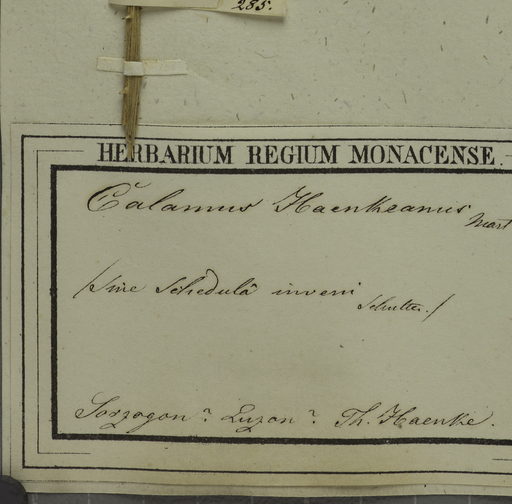 285.
HERBARIUM REGIUM MONACENSE.
Calamus Haenkeanus Mart
/Sine Schedulâ inveni Schultes./
Sorzogon? Luzon? Th. Haenke.